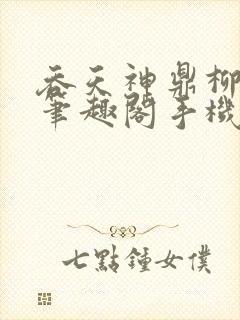 吞天神鼎柳
筆趣閣手機
七點鐘女僕